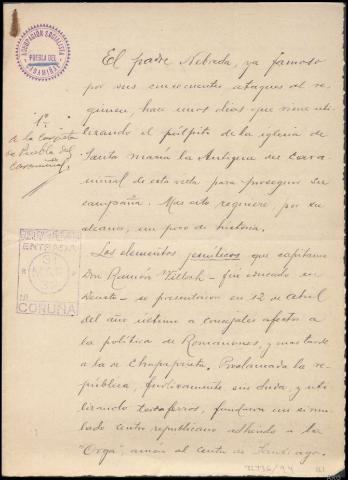 AGRUPACIÓN SOCIALISTA
PUEBLA DEL
CARAMIÑAL
El padre Nebada, ya famoso
por sus continuentes ataques al re-
gimen, hace unos días que viene uti-
lizando el púlpito de la iglesia de
Santa María la Antigua del Cara-
miñal de esta villa para proseguir su
campaña. Mas esto requiere por su
alcance, un poco de historia.
a la
de Puebla del
Caramiñal
ENTRADA
31
MAR
32
CORUÑA
Los elementos jesuíticos que capitanea
Don Ramón – fué educado en
Deusto – se presentaron en 12 de abril
del año último a concejales afectos a
la política de Romanones, y mas tarde
a la de Chapaprieta. Proclamada la re-
pública, furtivamente sin duda, y uti-
lizando terceros, fundaron un simu-
lado centro republicano adherido a la
"Orga", amén al centro de Santiago.